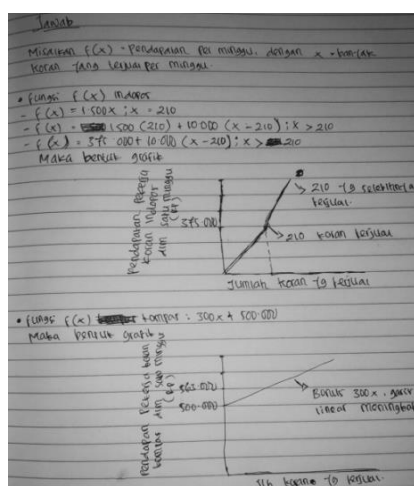 Jawab
Misalkan f(x) = pendapatan per minggu. dengan x = banyak
koran yang terjual per minggu.
• Fungsi f(x) Indopos
- f(x) = 1.500x ; x = 210
- f(x) = 1.500 (210) + 10.000 (x - 210) ; x > 210
- f(x) = 375.000 + 10.000 (x - 210) ; x > 210
Maka bentuk grafik
Pendapatan Pekerja
koran Indopos
dlm satu minggu
(RP)
375.000
210 yg selebihnya
terjual.
210 koran terjual
Jumlah koran yg terjual
• Fungsi f(x) kompas : 300x + 500.000
Maka bentuk grafik
Pendapatan Pekerja koran
kompas dlm satu minggu
(RP)
563.000
500.000
Bentuk 300x. garis
linear meningkat
Jlh koran yg terjual.